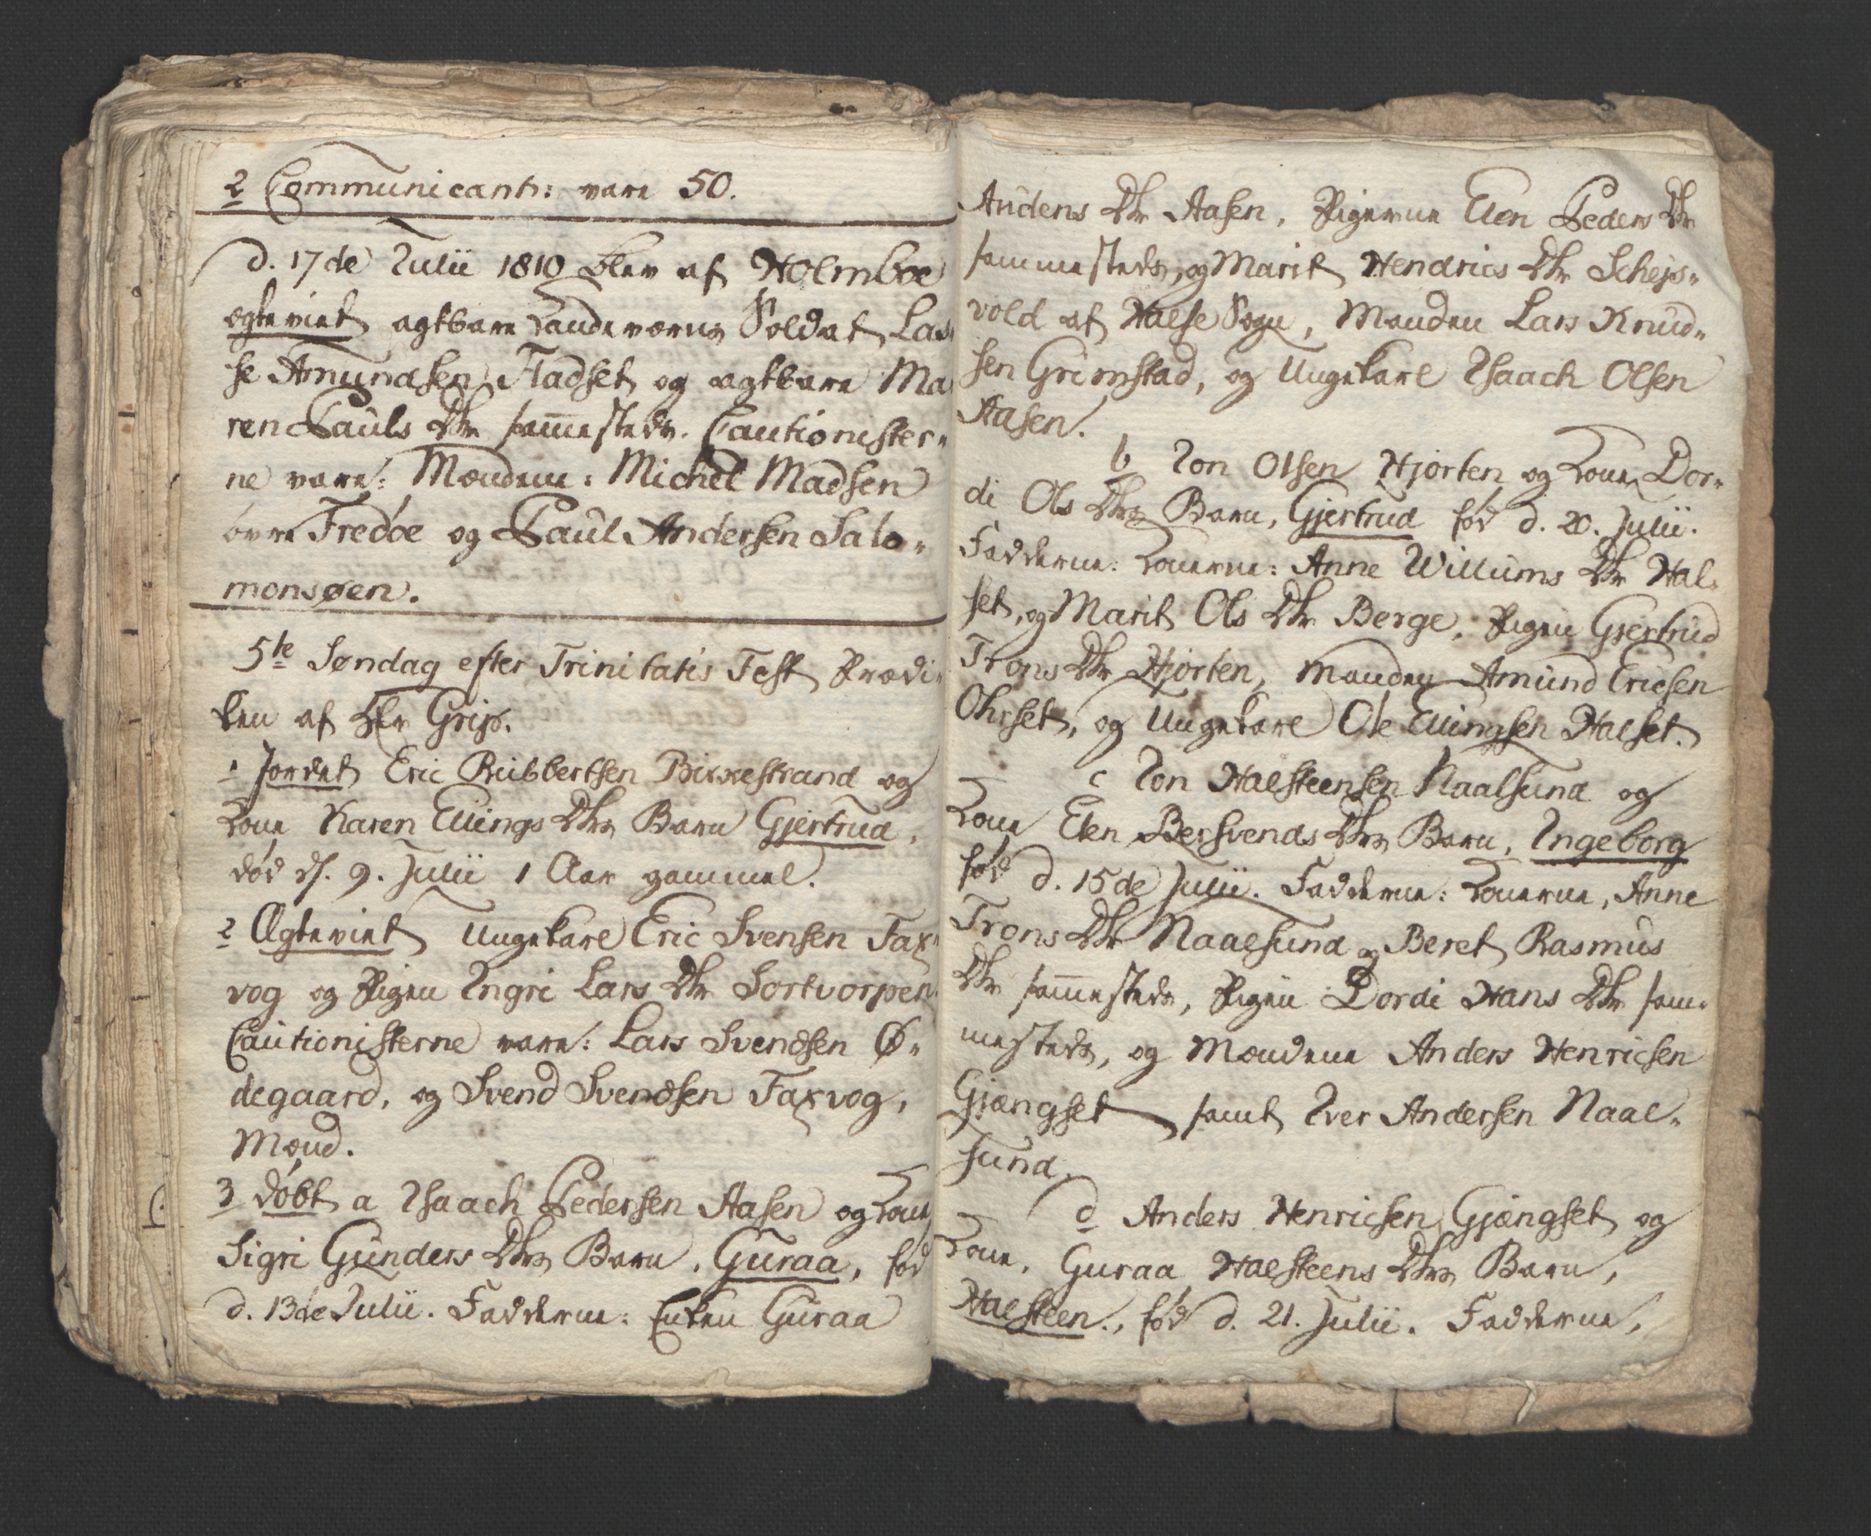 2 Communicant: vare 50.
d. 17de Julii 1810 blev af Holmboe
ægteviet agtbare Landeværns Soldat Las-
se Amundsen Fladset og agtbare Ma-
ren Pauls Dtr sam̄esteds. Cautionister-
ne vare: Mændene: Michel Madsen
øvre Fredøe og Paul Andersen Salo-
monsøen.
5te Søndag efter Trinitatis Fest Prædi-
ken af Hr Grip.
1 Jordet Eric Rubbertsen Bixxestrand og
Kone Karen Ellings Dtrs Barn Gjertrud,
død d. 9. Julii 1 Aar gammel.
2 Ægteviet Ungekarl Eric Svensen Fax-
vog og Pigen Ingri Lars Dtr Sortvorpen.
Cautionisterne vare: Lars Svendsen Ø-
degaard, og Svend Svendsen Faxvog,
Mænd.
3 døbt a Isaach Pedersen Aasen og Kone
Sigri Gunders Dtrs Barn, Guraa, fød
d. 13de Julii. Fadderne: Enken Guraa
Audens Dtr Aasen, Pigerne Elen Peders Dtr
sammesteds, og Marit Hendrics Dtr Schejs-
vold af Halse Sogn, Manden Lars Knud-
sen Grimstad, og Ungekarl Isaach Olsen
Aasen.
b Jon Olsen Hjorten og Kone Dor-
di Ols Dtrs Barn, Gjertrud fød d. 20. Julii.
Fadderne: Konerne: Anne Willums Dtr Hal-
set, og Marit Ols Dtr Berge, Pigen Gjertrud
Trons Dtr Hjorten, Manden Amund Ericsen
Ohrset, og Ungekarl Ole Ellingsen Halset.
c Jon Halsteensen Naalsund og
Kone Elen Bersvends Dtrs Barn, Ingeborg
fød d. 15de Julii. Fadderne: Konerne, Anne
Trons Dtr Naalsund og Beret Rasmus
Dtr sam̄esteds, Pigen Dordi Hans Dtr sam-
mesteds, og Mændene Anders Henricsen
Gjængset samt Iver Andersen Naal-
sund.
d Anders Henricsen Gjængset og
Kone, Guraa Halsteens Dtrs Barn,
Halsteen, fød d. 21. Julii. Fadderne,